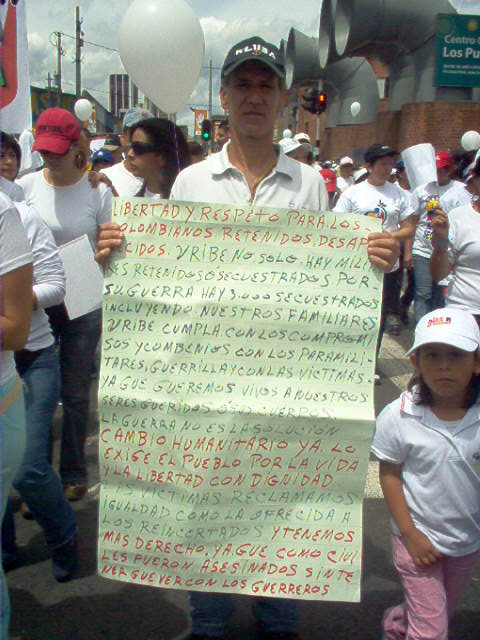 Centro
Los Pu
LIBERTAD Y RESPETO PARA LOS
COLOMBIANOS RETENIDOS, DESAPA
CIDOS. URIBE NO, SOLO, HAY MILI
RES RETENIDOS O SECUESTRADOS POR
SU GUERRA HAY 3.000 SECUESTRADOS
INCLUYENDO NUESTROS FAMILIARES
URIBE CUMPLA CON LOS COMPROMI
SOS Y COMBENIOS CON LOS PARAMILI
TARES, GUERRILLA Y CON LAS VICTIMAS.
YA QUE QUEREMOS VIVOS A NUESTROS
SERES QUERIDOS O SUS CUERPOS
LA GUERRA NO ES LA SOLUCIÓN
CAMBIO HUMANITARIO YA. LO
EXIGE EL PUEBLO POR LA VIDA
Y LA LIBERTAD CON DIGNIDAD
LAS VICTIMAS RECLAMAMOS
IGUALDAD COMO LA OFRECIDA A
LOS REINCERTADOS Y TENEMOS
MAS DERECHO, YA QUE COMO CIVI
LES FUERON ASESINADOS SINTE
NER QUE VER CON LOS GUERREROS